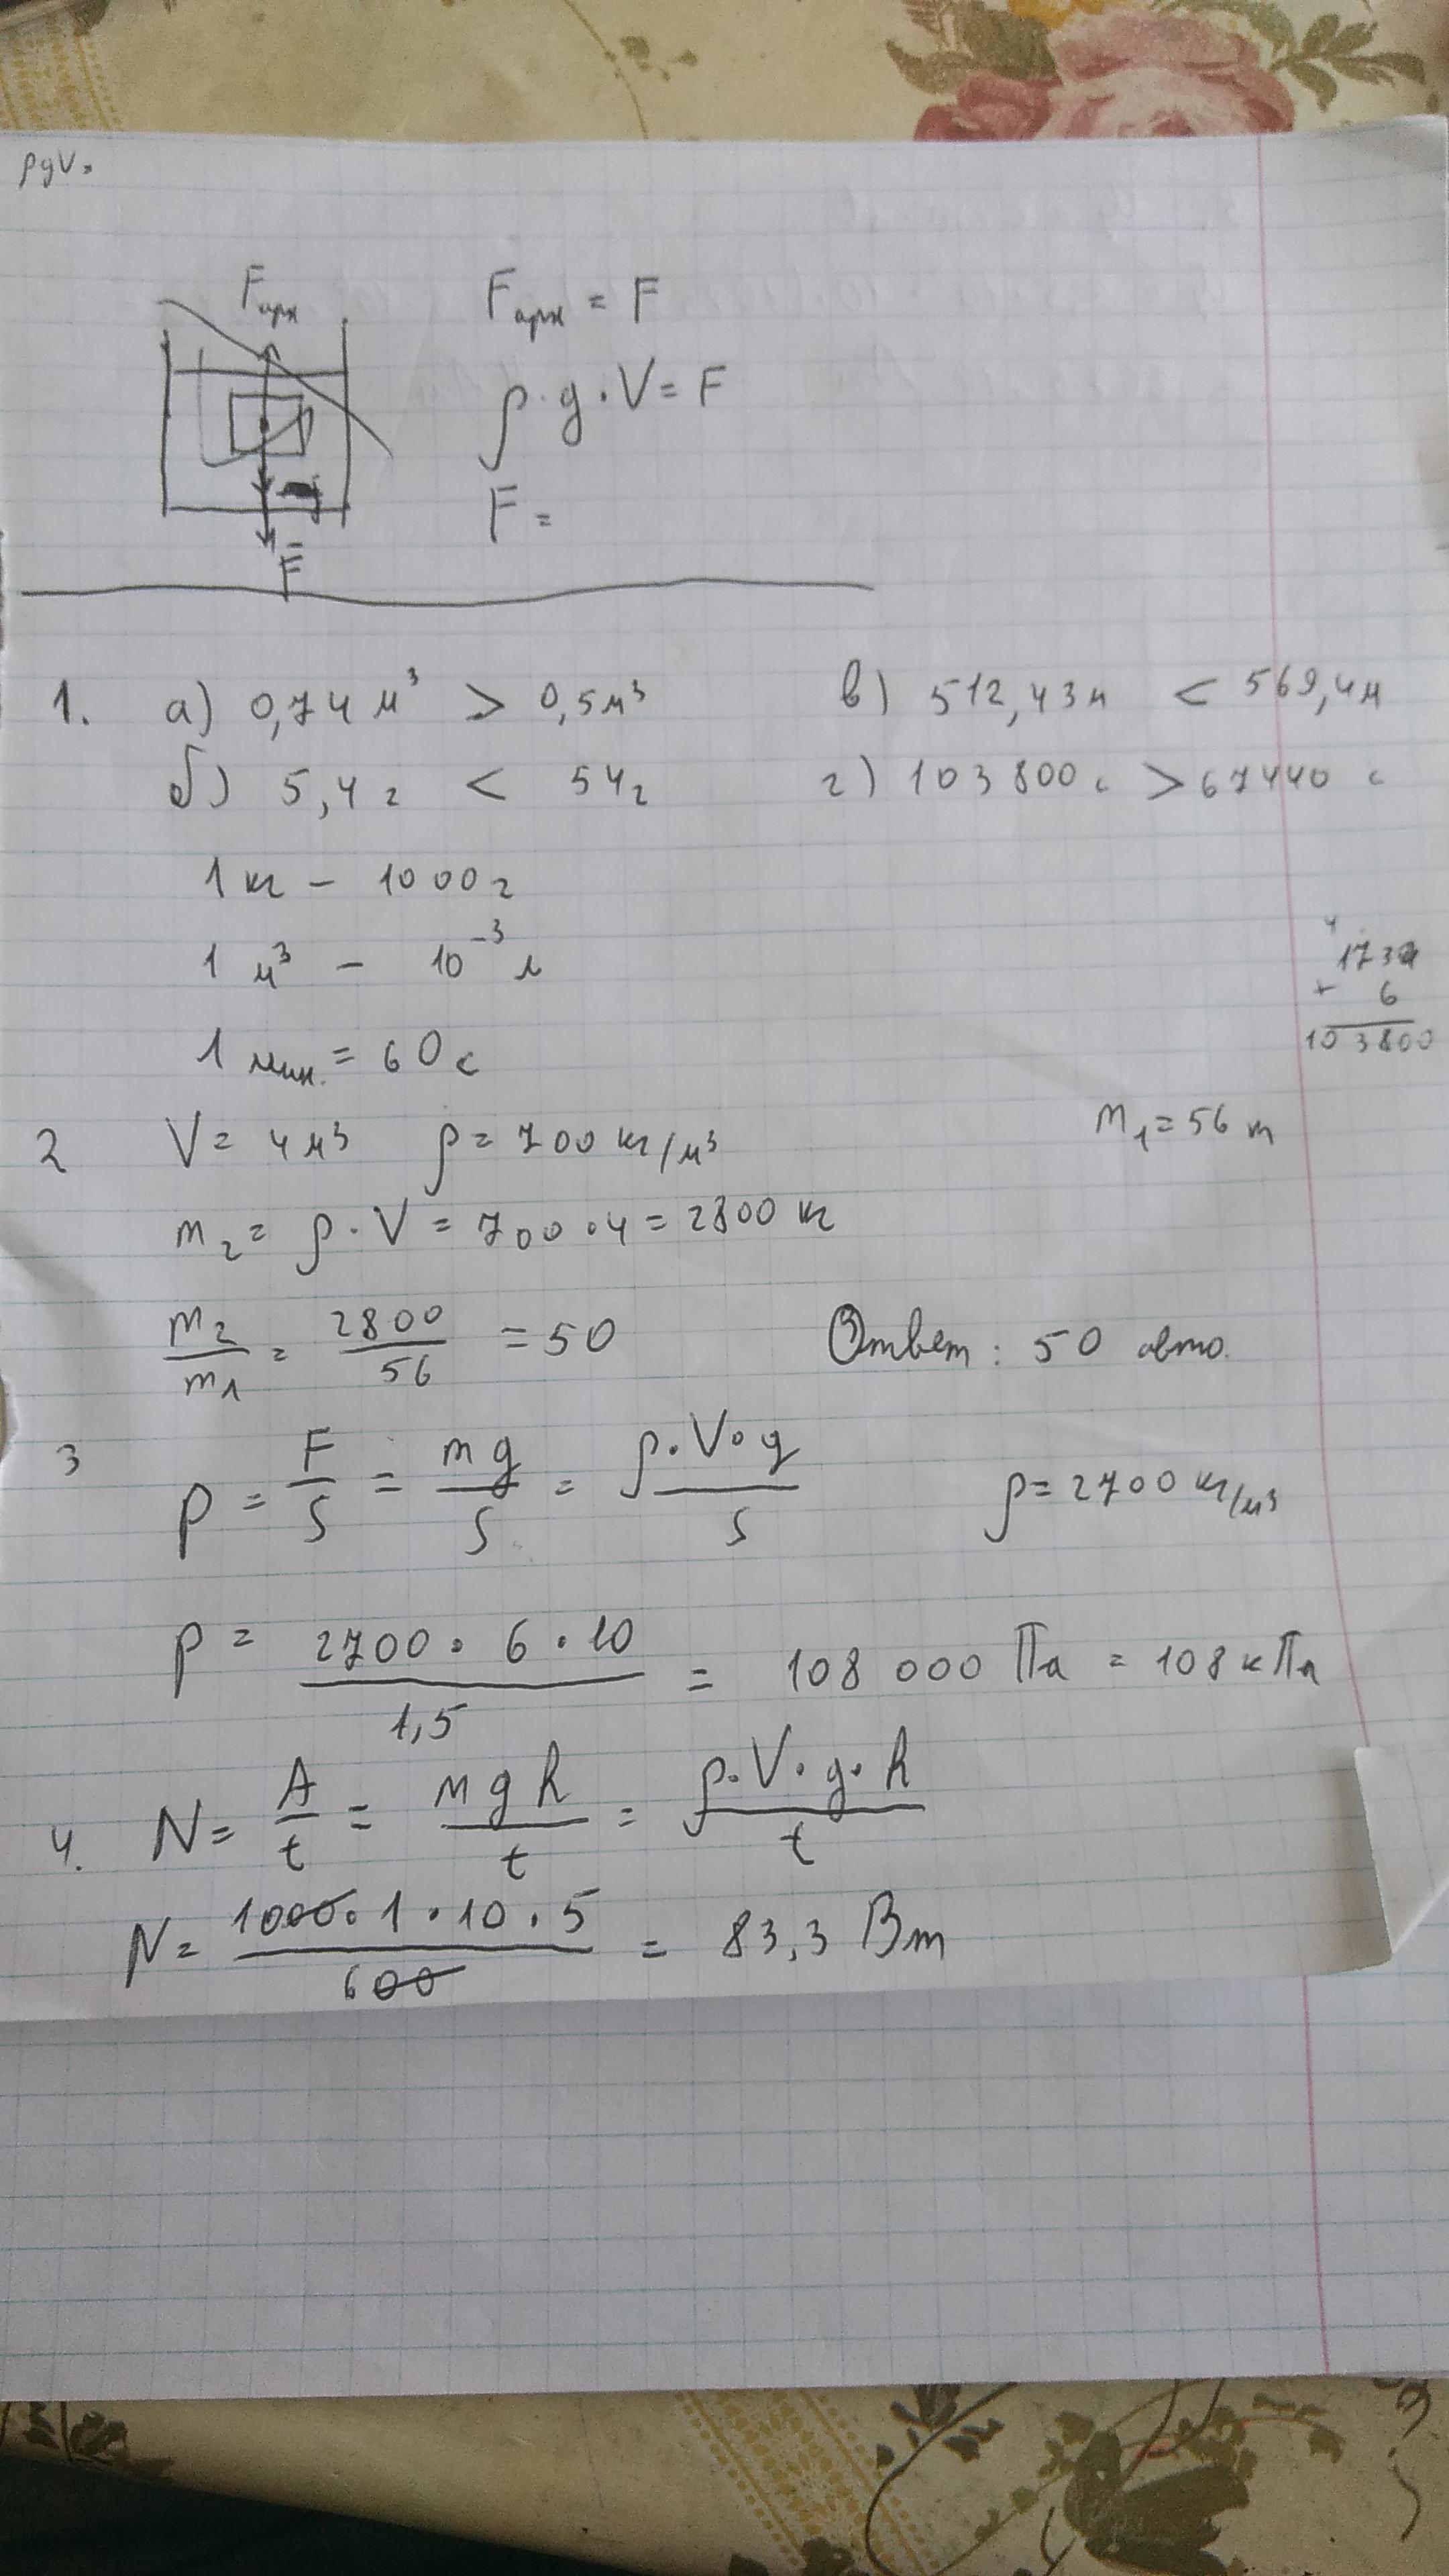 ρgV.
Fарх
Fарх = F
ρ·g·V = F
F =
F̄
1. а) 0,74 м³ > 0,5 м³ в) 512,43 м < 569,4 м
б) 5,4 г < 54 г г) 103 800 с > 67440 с
1 кг – 1000 г
1 м³ – 10⁻³ л
6
103800
1 мин. = 60 с
m₁ = 56 т
2 V = 4 м³ ρ = 700 кг/м³
m₂ = ρ·V = 700·4 = 2800 кг
m₂/m₁ = 2800/56 = 50 Ответ: 50 авто.
3 p = F/S = mg/S = ρ·V·g/S ρ = 2700 кг/м³
p = 2700·6·10/1,5 = 108 000 Па = 108 кПа
4. N = A/t = mgh/t = ρ·V·g·h/t
N = 1000·1·10·5/600 = 83,3 Вт